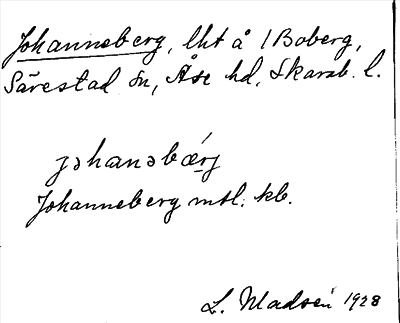 Johanneberg, lht å 1 Boberg,
Särestad sn, Åse hd, Skarab. l.
johansbærj
Johanneberg mtl. kb.
L. Madsén 1928